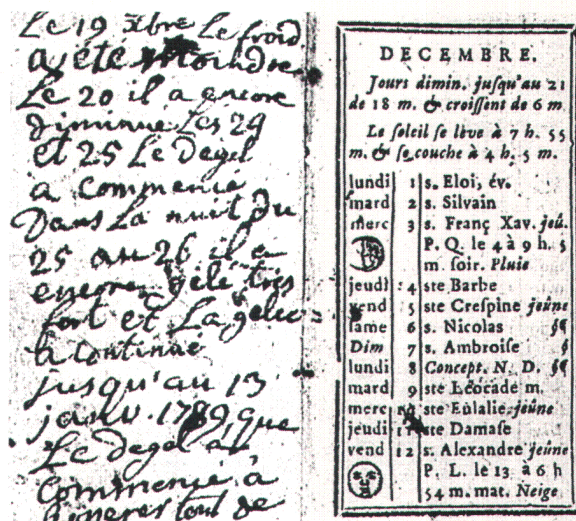 Le 19 xbre Le froid
a été moindre
Le 20 il a encore
diminué Les 24
et 25 Le Degel
a Commencé
Dans La nuit du
25 au 26 il a
encore gélé très
fort et La gelée
a Continué
jusqu'au 13
janv. 1789 que
Le degel a
Commencé à
de
DECEMBRE.
Jours dimin. jusqu'au 21
de 18 m. & croissent de 6 m
Le soleil se lève à 7 h. 55
m. & se couche à 4 h. 5 m.
lundi 1 s. Eloi, év.
mard 2 s. Silvain
merc 3 s. Franç Xav. jeû.
P. Q. le 4 à 9 h. 5
m. soir. Pluie
jeudi 4 ste Barbe
vend 5 ste Crespine jeûne
same 6 s. Nicolas §¶
Dim 7 s. Ambroise §
lundi 8 Concept. N. D. §¶
mard 9 ste Léocade m.
merc 10 ste Eulalie jeûne
jeudi 11 ste Damase
vend 12 s. Alexandre jeûne
P. L. le 13 à 6 h
54 m. mat. Neige